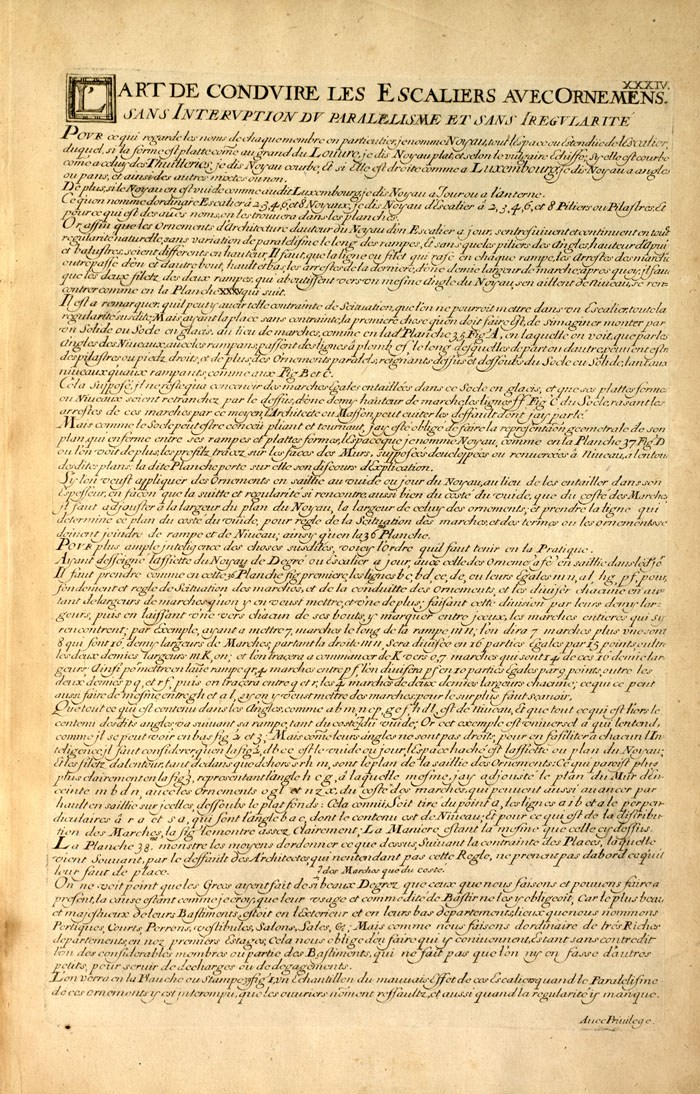 XXXIV.
L'ART DE CONDVIRE LES ESCALIERS AVEC ORNEMENS.
SANS INTERVPTION DV PARALELISME ET SANS IREGVLARITÉ
POVR ce qui regarde les noms de chaque membre en particutier, je nomme Noyau, tout l'Espace ou Estendüe de l'Escalier,
duquel, si la forme est platte come au grand du Louure, je dis Noyau plat, et selon le vulgaire Echiffe; sy elle est courbe
come a celuy des Thuilleries, je dis Noyau courbe, Et si Elle est droite comme a Luxembourg, je dis Noyau a angles
ou pans, et ainsi des autres mixtes ou non.
De plus, si le Noyau en est vuide comme audit Luxembourg, je dis Noyau a Jour ou a lanterne.
Ce qu'on nomme d'ordinaire Escalier à 2, 3, 4, 6, et 8 Noyaux, je dis Noyau d'Escalier à 2, 3, 4, 6, et 8 Piliers ou Pilastres. Et
pour ce qui est des autres noms, on les trouuera dans les planches.
Or affin que les Ornements d'Architecture d'autour du Noyau d'vn Escalier a jour, s'entresuiuent et continuent en toute
regularité naturelle, sans variation de paralelisme le long des rampes, Et sans que les piliers des angles, hauteur d'Apui
et balustres, soient differents en hauteur. Il faut, que la ligne ou filet qui rase en chaque rampe, les arrestes des marches
outrepasse d'vn et d'autre bout, haut et bas, les arrestes de la derniere, d'vne demie largeur de marche, apres quoy, il faut
que les deux filets des deux rampes, qui aboutissent vers vn mesme angle du Noyau, s'en aillent de Niueau, se ren-
contrer comme en la Planche XXXV qui suit.
Il est a remarquer, qu'il peut y auoir telle contrainte de Scituation, que l'on ne pourroit mettre dans vn Escalier, toute la
regularité susdite; Mais ayant la place sans contrainte, la premiere chose qu'on doit faire Est, de s'imaginer monter par
vn Solide ou Socle en glacis, au lieu de marches, comme en lad. Planche 35 Fig A, en laquelle on voit, que par les
angles des Niueaux, auec les rampans, passent des lignes à plomb ef, le long desquelles, de part ou d'autre peuuent estre
des pilastres ou piedz droits, et de plus, des Ornements paralels, reignants dessus et dessoubs du Socle ou Solide, tant aux
niueaux qu'aux rampants, comme aux Fig B et C.
Cela Supposé, il ne reste qu'a conceuoir des marches égales entaillées dans ce Socle en glacis, et que ses plattes formes
ou Niueaux soient retranchez par le dessus, d'vne demy hauteur de marche, les lignes ff Fig C du Socle, rasant les
arrestes de ces marches par ce moyen l'Architecte ou Masson, peut euiter les deffauts dont j'ay parlé.
Mais comme le Socle peut estre conceu pliant et tournant, j'ay esté obligé de faire la representaõn geometrale de son
plan, qui enferme entre ses rampes et plattes formes, l'Espace que je nomme Noyau, comme en la Planche 37 Fig D
ou l'on voit de plus, les profilz, tracez sur les faces des Murs, supposées deuelopées ou renuersées à Niueau, a l'entour
des dits plans: la dite Planche porte sur elle son discours d'Explication.
Sy l'on veust appliquer des Ornements en saillie au vuide ou jour du Noyau, au lieu de les entailler dans son
Espesseur, en façon que la suitte et regularité si rencontre aussi bien du costé du vuide, que du costé des Marches
jl faut adjouster à la largeur du plan du Noyau, la largeur de celuy des ornements, et prendre la ligne qui
determine ce plan du costé du vuide, pour regle de la Scituation des marches, et des termes ou les ornements se
doiuent joindre de rampe et de Niueau; ainsy qu'en la 36 Planche.
POVR plus ample inteligence des choses susdites, voicy l'ordre qu'il faut tenir en la Pratique.
Ayant desseigné l'assiette du Noyau de Degré ou Escalier a jour, auec celle des Ornemens
Il faut prendre comme en cette 36 Planche fig premiere, les lignes bc, bd, ce, de, ou leurs égales mn, al, hg, pf, pour,
fondement et regle de Scituation des marches, et de la conduitte des Ornements, et les diuiser chacune en au-
tant de largeurs de marches qu'on y en veust mettre, et vne de plus; faisant cette diuision par leurs demy lar-
geurs, puis en laissant vne vers chacun de ses bouts, y marquer entre jceux, les marches entieres qui sy
rencontrent; par exemple, ayant a mettre 7, marches le long de la rampe mn, l'on dira 7 marches plus vne sont
8 qui font 16, demy largeurs de Marches, partant la droite mn, Sera diuisée en 16 parties égales par 15 points, outre
les deux demies largeurs m K, on; et l'on tracera a commancer de K vers o, 7 marches qui sont 14 de ces 16 demie lar-
geurs. Ainsi po mettre en l'autre rampe qr 4 marches entre pf l'on diuisera pf en 10 parties égales par 9 points, outre les
deux demies pq, et rf, puis on tracera entre q et r, les 4 marches de deux demies largeurs chacune; ce qui ce peut
aussi faire de mesme entre gh et al, sy on y veust mettre des marches, pour le surplus faut sçauoir,
Que tout ce qui est contenu dans les Angles, comme ab mn cp ge f hdl, est de Niueau, Et que tout ce qui est hors le
contenu des dits angles, va suiuant sa rampe, tant du costé du vuide; Or cet exemple est vniuersel à qui l'entend,
comme jl se peut voir en bas fig 2 et 3; Mais côme leurs angles ne sont pas droits, pour en facilliter à chacun l'In
teligence, jl faut considerer, qu'en la fig 2, dbce est le vuide ou jour, l'Espace haché est l'assiette ou plan du Noyau;
Et les filetz d'alentour, tant dedans que dehors srhm, sont le plan de la saillie des Ornements: Ce qui paroist plus
plus clairement en la fig 3, representant l'angle hcg, à laquelle mesme, j'ay adjousté le plan du Mur d'en-
ceinte mbdn, auec les Ornements ogl et nzx, du costé des marches, qui peuuent aussi auancer par
hault en saillie sur jcelles, dessoubs le plat fonds: Cela connû, Soit tiré du point a, les lignes aib et ale perpen-
diculaires à ra et sa, qui font l'angle bac, dont le contenu est de Niueau; Et pour ce qui est de la distribu-
tion des Marches, la fig le montre assez clairement; La Maniere estant la mesme que celle cy dessus.
La Planche 38. monstre les moyens d'ordonner ce que dessus, Suiuant la contrainte des Places, laquelle
vient Souuant, par le deffault des Architectes, qui n'entendant pas cette Regle, ne prenent pas d'abord ce qu'il
leur faut de place.
? des Marches que du costé.
On ne voit point que les Grecs ayent fait de si beaux Degrez, que ceux que nous faisons et pouuons faire a
present, la cause estant comme je croy, que leur vsage et commodité de Bastir ne les y obligeoit, Car le plus beau,
et majestueux de leurs Bastiments, estoit en l'Exterieur et en leurs bas departements, lieux que nous nommons
Portiques, Courts, Perrons, Vestibules, Salons, Sales, &c, Mais comme nous faisons d'ordinaire de trés Riches
departements, en noz premiers Estages, Cela nous oblige d'en faire qui y conuiennent, Estant sans contredit
l'vn des considerables membres ou partie des Bastiments, qui ne fait pas que l'on n'y en fasse d'autres
petits, pour seruir de decharges ou de degagements.
L'on verra en la Planche ou Stampe fig 1, vn échantillon du mauuais Effet de ces Escaliers quand le Paralelisme
de ces ornements y est interompu, que les ouuriers nôment reffaultz, et aussi quand la regularité i'y manque.
Auec Priuilege.